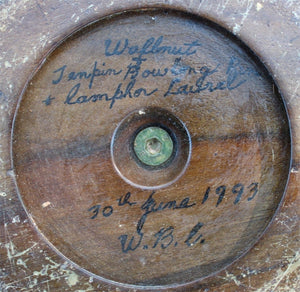 Wallnut
Tenpin Bowling
+ Camphor Laurel
30th June 1993
W.B.C.